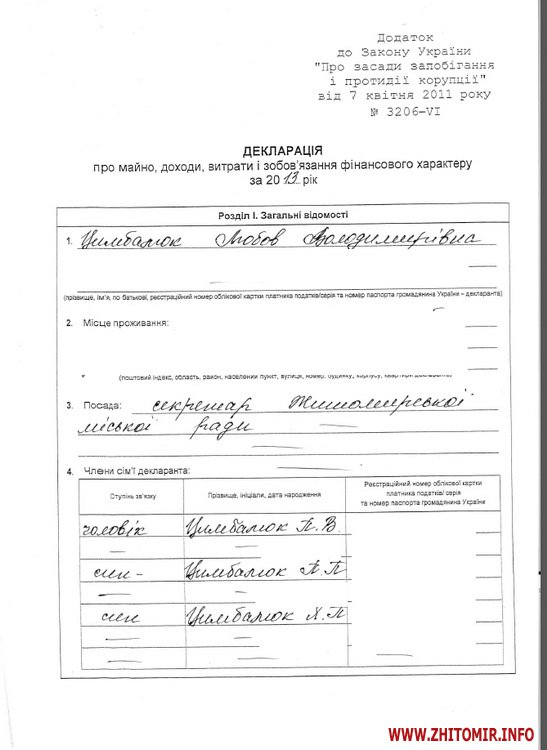 Додаток
до Закону України
"Про засади запобігання
і протидії корупції"
від 7 квітня 2011 року
№ 3206-VI
ДЕКЛАРАЦІЯ
про майно, доходи, витрати і зобов'язання фінансового характеру
за 2013 рік
Розділ І. Загальні відомості
1. Цимбалюк Любов Володимирівна
(прізвище, ім'я, по батькові, реєстраційний номер облікової картки платника податків/серія та номер паспорта громадянина України - декларанта)
2. Місце проживання:
(поштовий індекс, область, район, населений пункт, вулиця, номер: будинку, корпусу, квартири декларанта)
3. Посада: секретар Житомирської
міської ради
4. Члени сім'ї декларанта:
Ступінь зв'язку
Прізвище, ініціали, дата народження
Реєстраційний номер облікової картки
платника податків/ серія
та номер паспорта громадянина України
чоловік Цимбалюк П. В.
син - Цимбалюк А П
син Цимбалюк Х. П
WWW.ZHITOMIR.INFO